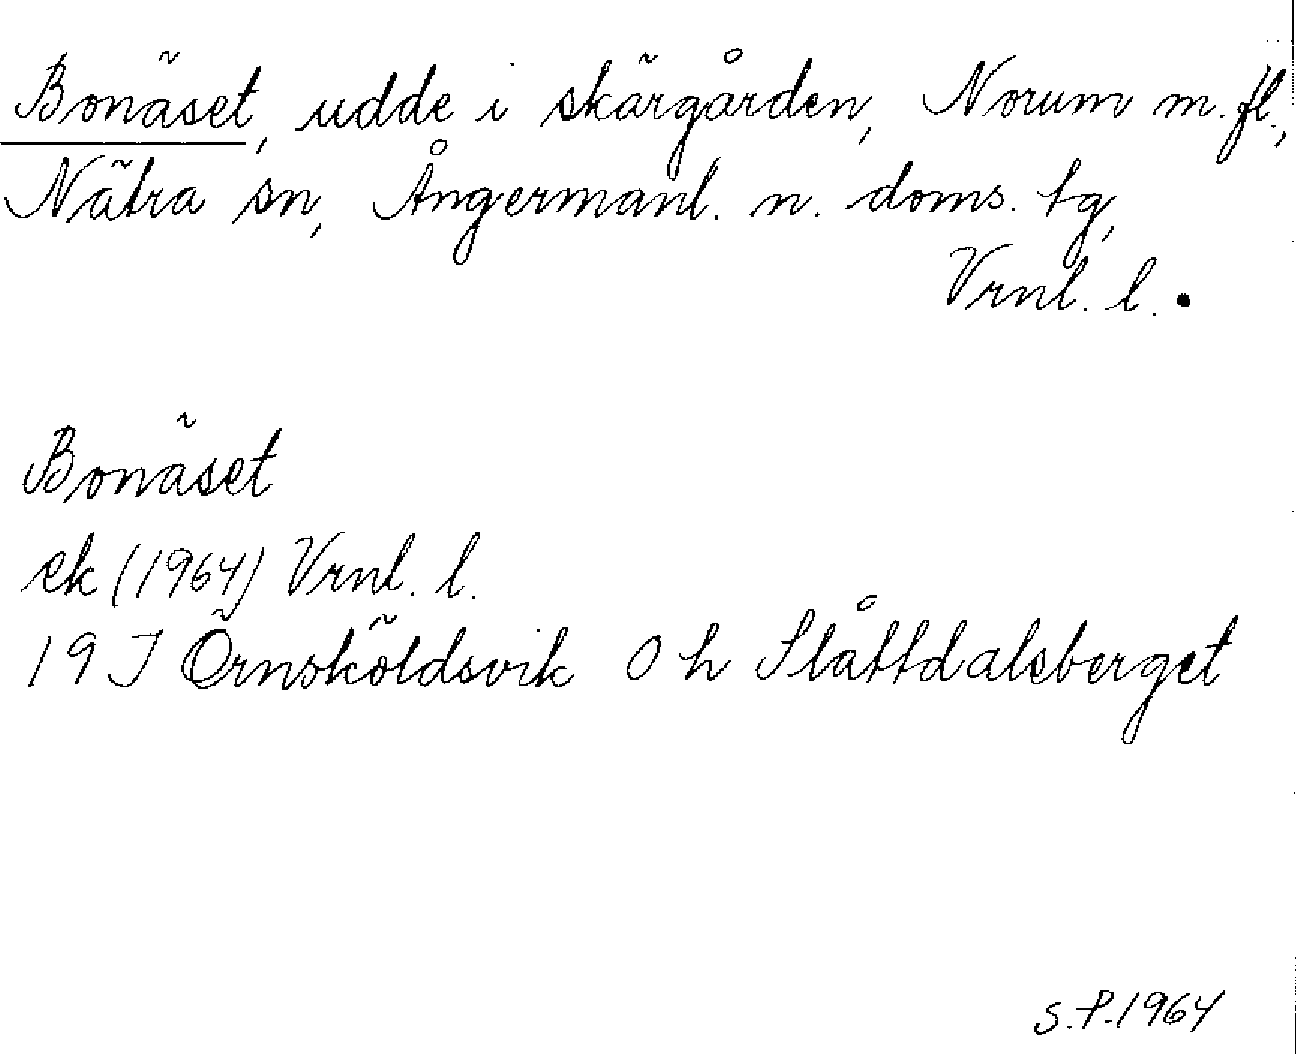 Bonäset, udde i skärgården, Norum m. fl.,
Nätra sn, Ångermanl. n. doms. tg,
Vrnl. l.
Bonäset
ek (1964) Vrnl. l.
19 I Örnsköldsvik 0 h Slåttdalsberget
S.P.1964